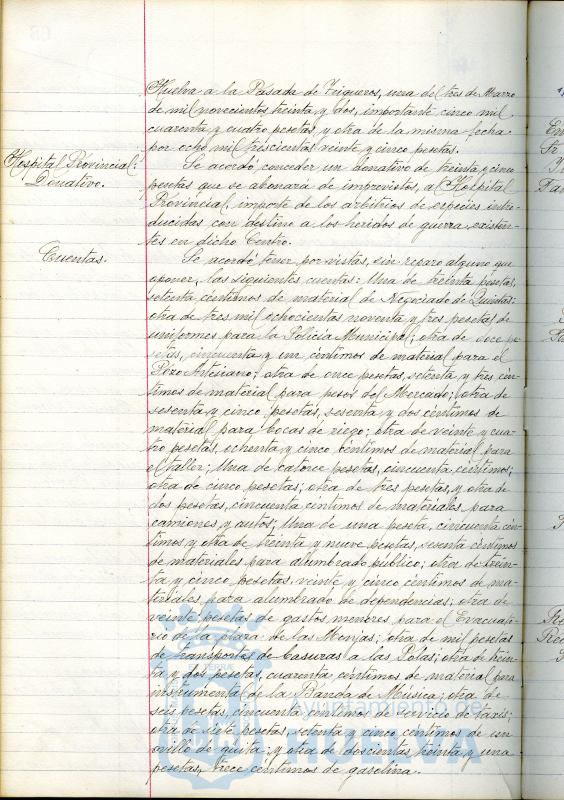 Huelva a la Pasada de Trigueros, una del tres de Marzo
de mil novecientos treinta y dos, importante cinco mil
cuarenta y cuatro pesetas, y otra de la misma fecha
por ocho mil trescientos veinte y cinco pesetas.
Hospital Provincial:
Donativo.
Se acordó conceder un donativo de treinta y cinco
pesetas que se abonará de imprevistos, al Hospital
Provincial, importe de los arbitrios de especies intro-
ducidas con destino a los heridos de guerra existen-
tes en dicho Centro.
Cuentas.
Se acordó tener por vistas, sin reparo alguno que
oponer, las siguientes cuentas: Una de treinta pesetas,
setenta céntimos de material de Negociado de Quintas;
otra de tres mil ochocientas noventa y tres pesetas de
uniformes para la Policía Municipal; otra de doce pe-
setas, cincuenta y un céntimos de material para el
Pozo Artesiano; otra de once pesetas, setenta y tres cén-
timos de material para pesos del Mercado; otra de
sesenta y cinco pesetas, sesenta y dos céntimos de
material para bocas de riego; otra de veinte y cua-
tro pesetas, ochenta y cinco céntimos de material para
el taller; Una de catorce pesetas, cincuenta céntimos;
otra de cinco pesetas; otra de tres pesetas, y otra de
dos pesetas, cincuenta céntimos de materiales para
camiones y autos; Una de una peseta, cincuenta cén-
timos y otra de treinta y nueve pesetas, sesenta céntimos
de materiales para alumbrado público; otra de trein-
ta y cinco pesetas veinte y cinco céntimos de ma-
teriales para alumbrado de dependencias; otra de
veinte pesetas de gastos menores para el Evacuato-
rio de la plaza de las Monjas; otra de mil pesetas
de transportes de basuras a las Polas; otra de trein-
ta y dos pesetas, cuarenta céntimos de material para
instrumental de la Banda de Música; otra de
seis pesetas, cincuenta céntimos de servicio de taxis;
otra de siete pesetas, setenta y cinco céntimos de un
ovillo de guita; y otra de doscientas treinta y una
pesetas, trece céntimos de gasolina.
Ayuntamiento de
HUELVA